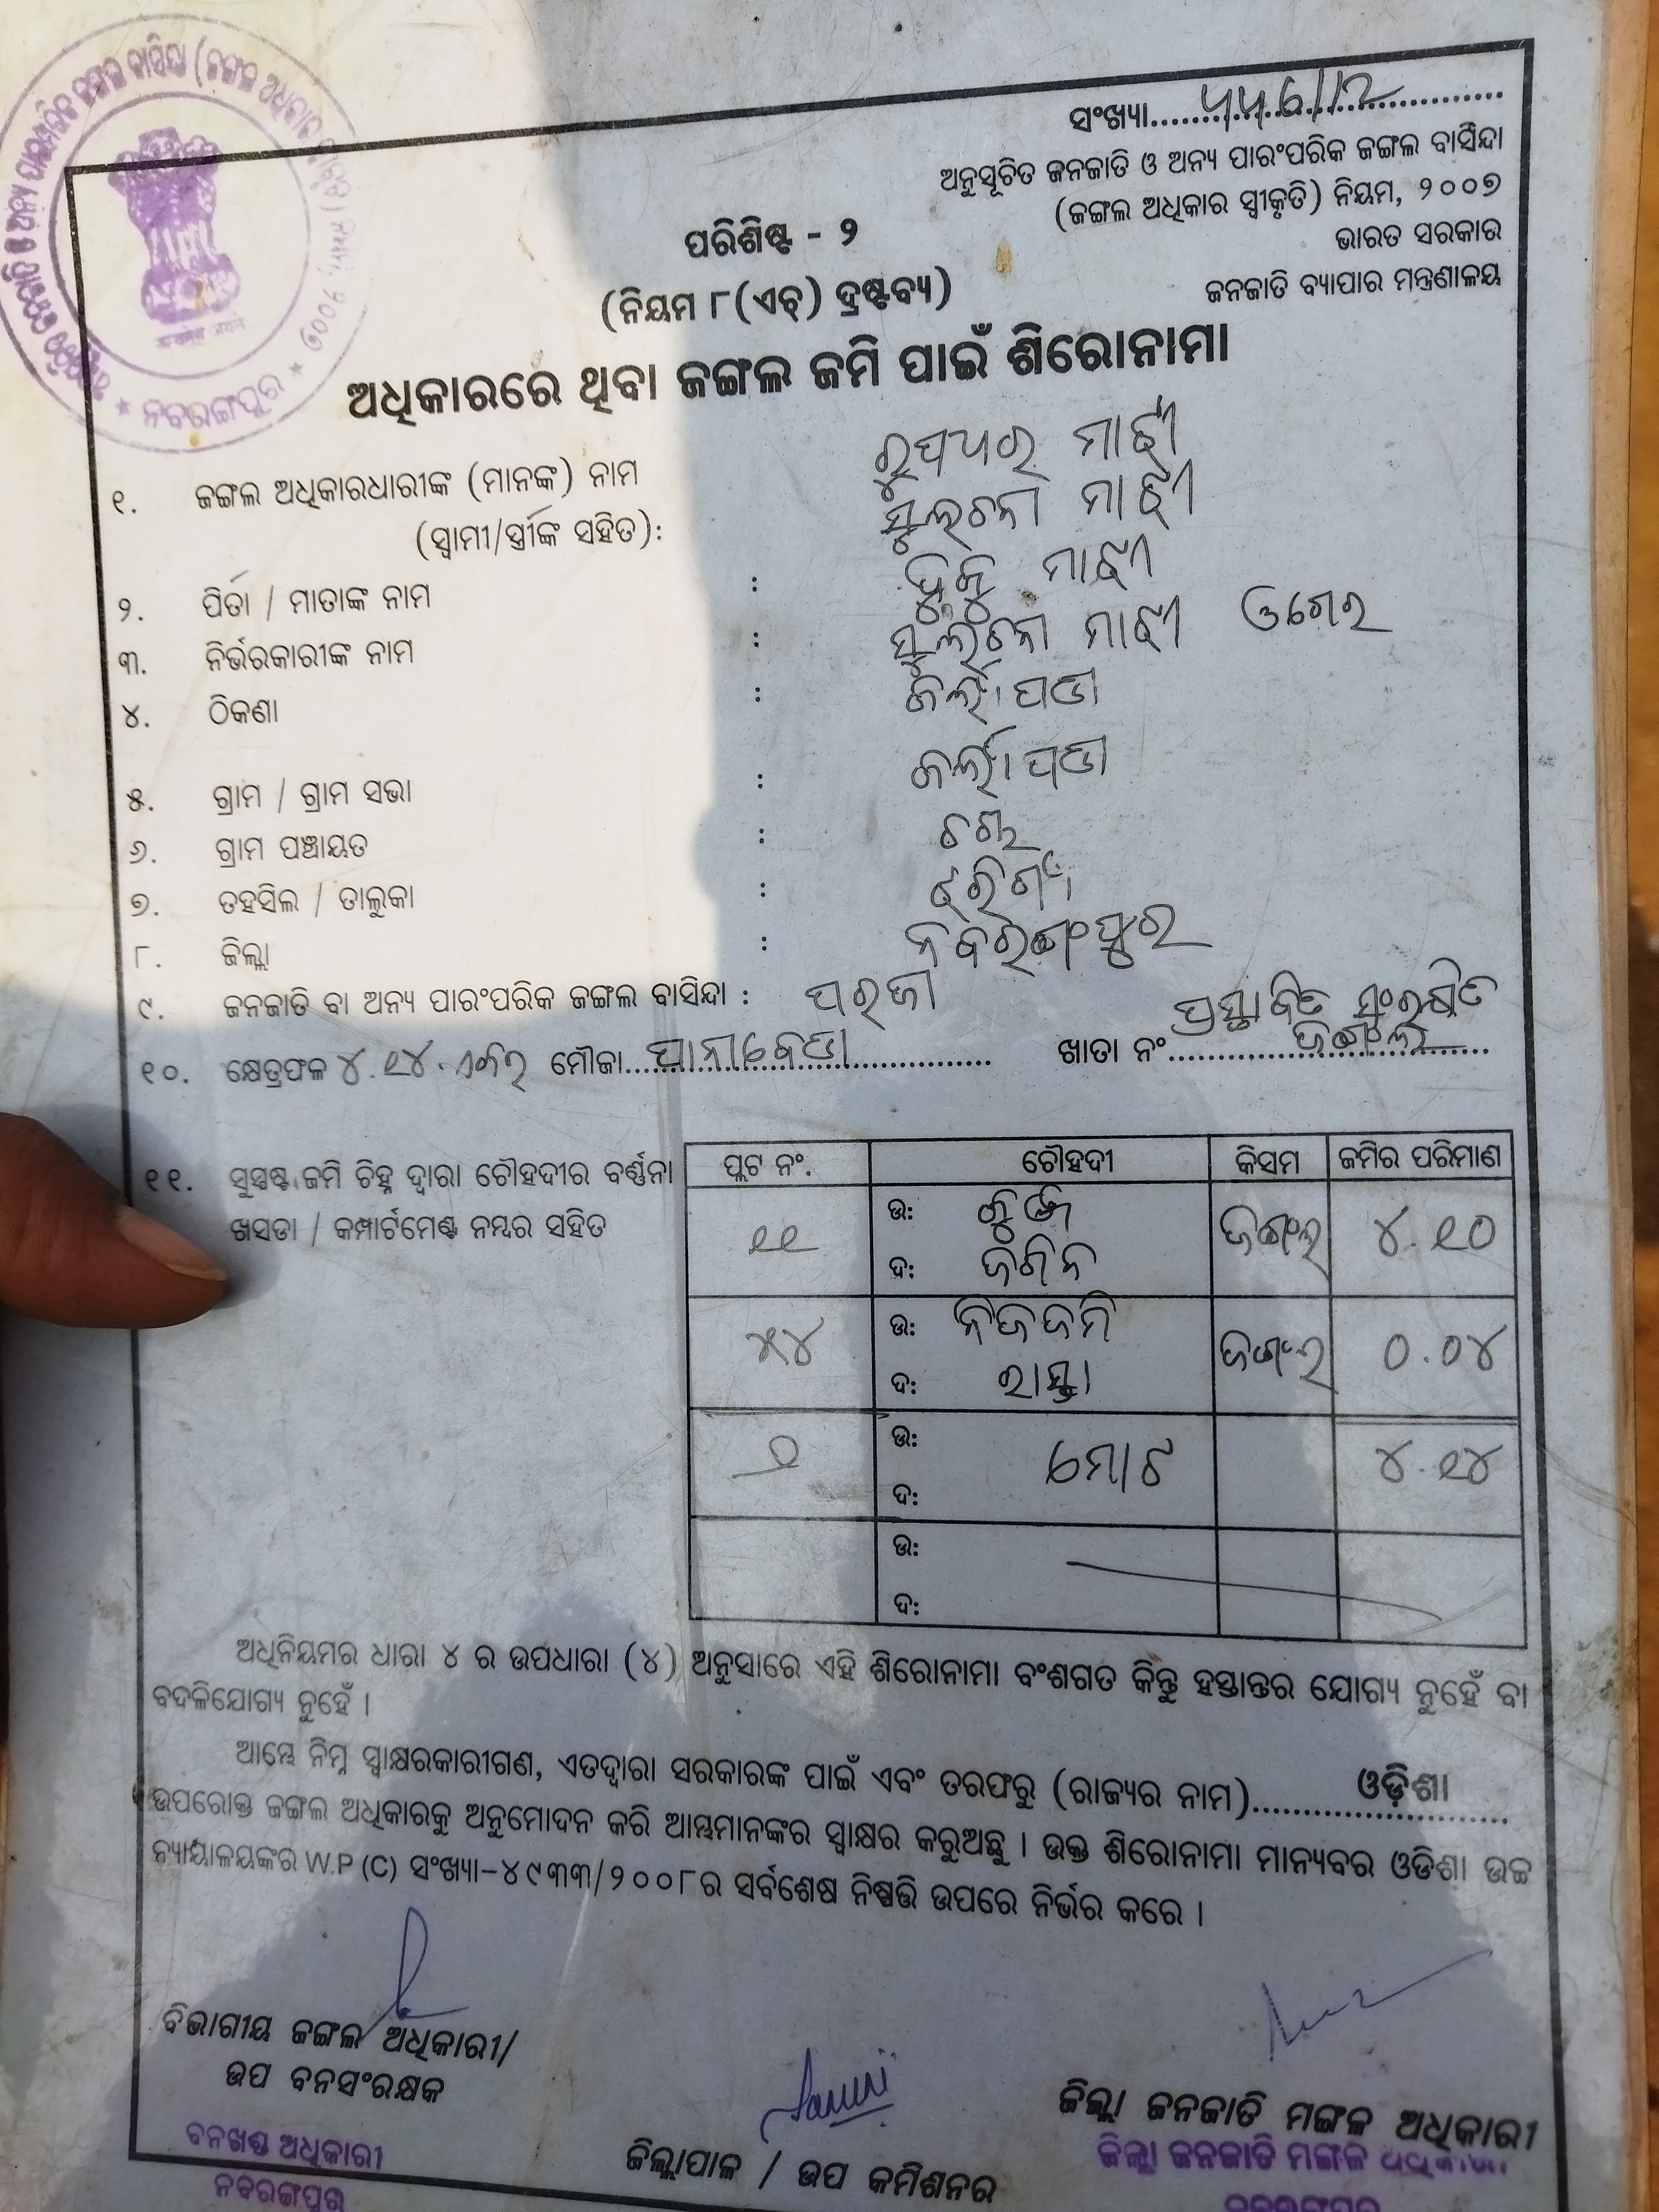 ସଂଖ୍ୟା
ଅନୁସୂଚିତ ଜନଜାତି ଓ ଅନ୍ୟ ପାରଂପରିକ ଜଙ୍ଗଲ ବାସିନ୍ଦା
(ଜଙ୍ଗଲ ଅଧିକାର ସ୍ୱୀକୃତି) ନିୟମ, ୨୦୦୭
ଭାରତ ସରକାର
ଜନଜାତି ବ୍ୟାପାର ମନ୍ତ୍ରଣାଳୟ
ନବରଙ୍ଗପୁର
ପରିଶିଷ୍ଟ - ୨
(ନିୟମ ୮(ଏଚ୍) ଦ୍ରଷ୍ଟବ୍ୟ)
ଅଧିକାରରେ ଥିବା ଜଙ୍ଗଲ ଜମି ପାଇଁ ଶିରୋନାମା
୧. ଜଙ୍ଗଲ ଅଧିକାରଧାରୀଙ୍କ (ମାନଙ୍କ) ନାମ ରୁପଧର ମାଝୀ
(ସ୍ୱାମୀ/ସ୍ତ୍ରୀଙ୍କ ସହିତ): ମାଝୀ
୨. ପିତା / ମାତାଙ୍କ ନାମ : ମାଝୀ
୩. ନିର୍ଭରକାରୀଙ୍କ ନାମ : ମାଝୀ ଓଗେର
୪. ଠିକଣା :
୫. ଗ୍ରାମ / ଗ୍ରାମ ସଭା :
୬. ଗ୍ରାମ ପଞ୍ଚାୟତ :
୭. ତହସିଲ / ତାଲୁକା : ଝରିଗାଁ
୮. ଜିଲ୍ଲା : ନବରଙ୍ଗପୁର
୯. ଜନଜାତି ବା ଅନ୍ୟ ପାରଂପରିକ ଜଙ୍ଗଲ ବାସିନ୍ଦା : ପରଜା
୧୦. କ୍ଷେତ୍ରଫଳ ୪.୧୪ ଏକର ମୌଜା ପାନାବେଡା ଖାତା ନଂ ପ୍ରସ୍ତାବିତ ସଂରକ୍ଷିତ ଜଙ୍ଗଲ
୧୧. ସୁସ୍ପଷ୍ଟ ଜମି ଚିହ୍ନ ଦ୍ୱାରା ଚୌହଦୀର ବର୍ଣ୍ଣନା
ଖସଡା / କମ୍ପାର୍ଟମେଣ୍ଟ ନମ୍ବର ସହିତ
ପ୍ଲଟ ନଂ. ଚୌହଦୀ କିସମ ଜମିର ପରିମାଣ
୧୧ ଉ: ଜଙ୍ଗଲ ୪.୧୦
ଦ:
୫୪ ଉ: ନିଜଜମି ଜଙ୍ଗଲ ୦.୦୪
ଦ: ରାସ୍ତା
୨ ଉ: ମୋଟ ୪.୧୪
ଦ:
ଉ:
ଦ:
ଅଧିନିୟମର ଧାରା ୪ ର ଉପଧାରା (୪) ଅନୁସାରେ ଏହି ଶିରୋନାମା ବଂଶଗତ କିନ୍ତୁ ହସ୍ତାନ୍ତର ଯୋଗ୍ୟ ନୁହେଁ ବା
ବଦଳିଯୋଗ୍ୟ ନୁହେଁ ।
ଆମ୍ଭେ ନିମ୍ନ ସ୍ୱାକ୍ଷରକାରୀଗଣ, ଏତଦ୍ୱାରା ସରକାରଙ୍କ ପାଇଁ ଏବଂ ତରଫରୁ (ରାଜ୍ୟର ନାମ) ଓଡ଼ିଶା
ଉପରୋକ୍ତ ଜଙ୍ଗଲ ଅଧିକାରକୁ ଅନୁମୋଦନ କରି ଆମ୍ଭମାନଙ୍କର ସ୍ୱାକ୍ଷର କରୁଅଛୁ । ଉକ୍ତ ଶିରୋନାମା ମାନ୍ୟବର ଓଡିଶା ଉଚ୍ଚ
ନ୍ୟାୟାଳୟଙ୍କର W.P (C) ସଂଖ୍ୟା-୪୯୩୩/୨୦୦୮ର ସର୍ବଶେଷ ନିଷ୍ପତ୍ତି ଉପରେ ନିର୍ଭର କରେ ।
ବିଭାଗୀୟ ଜଙ୍ଗଲ ଅଧିକାରୀ/
ଉପ ବନସଂରକ୍ଷକ
ବନଖଣ୍ଡ ଅଧିକାରୀ
ନବରଙ୍ଗପୁର
ଜିଲ୍ଲାପାଳ / ଉପ କମିଶନର
ଜିଲ୍ଲା ଜନଜାତି ମଙ୍ଗଳ ଅଧିକାରୀ
ଜିଲ୍ଲା ଜନଜାତି ମଙ୍ଗଳ ଅଧିକାରୀ
ନବରଙ୍ଗପୁର